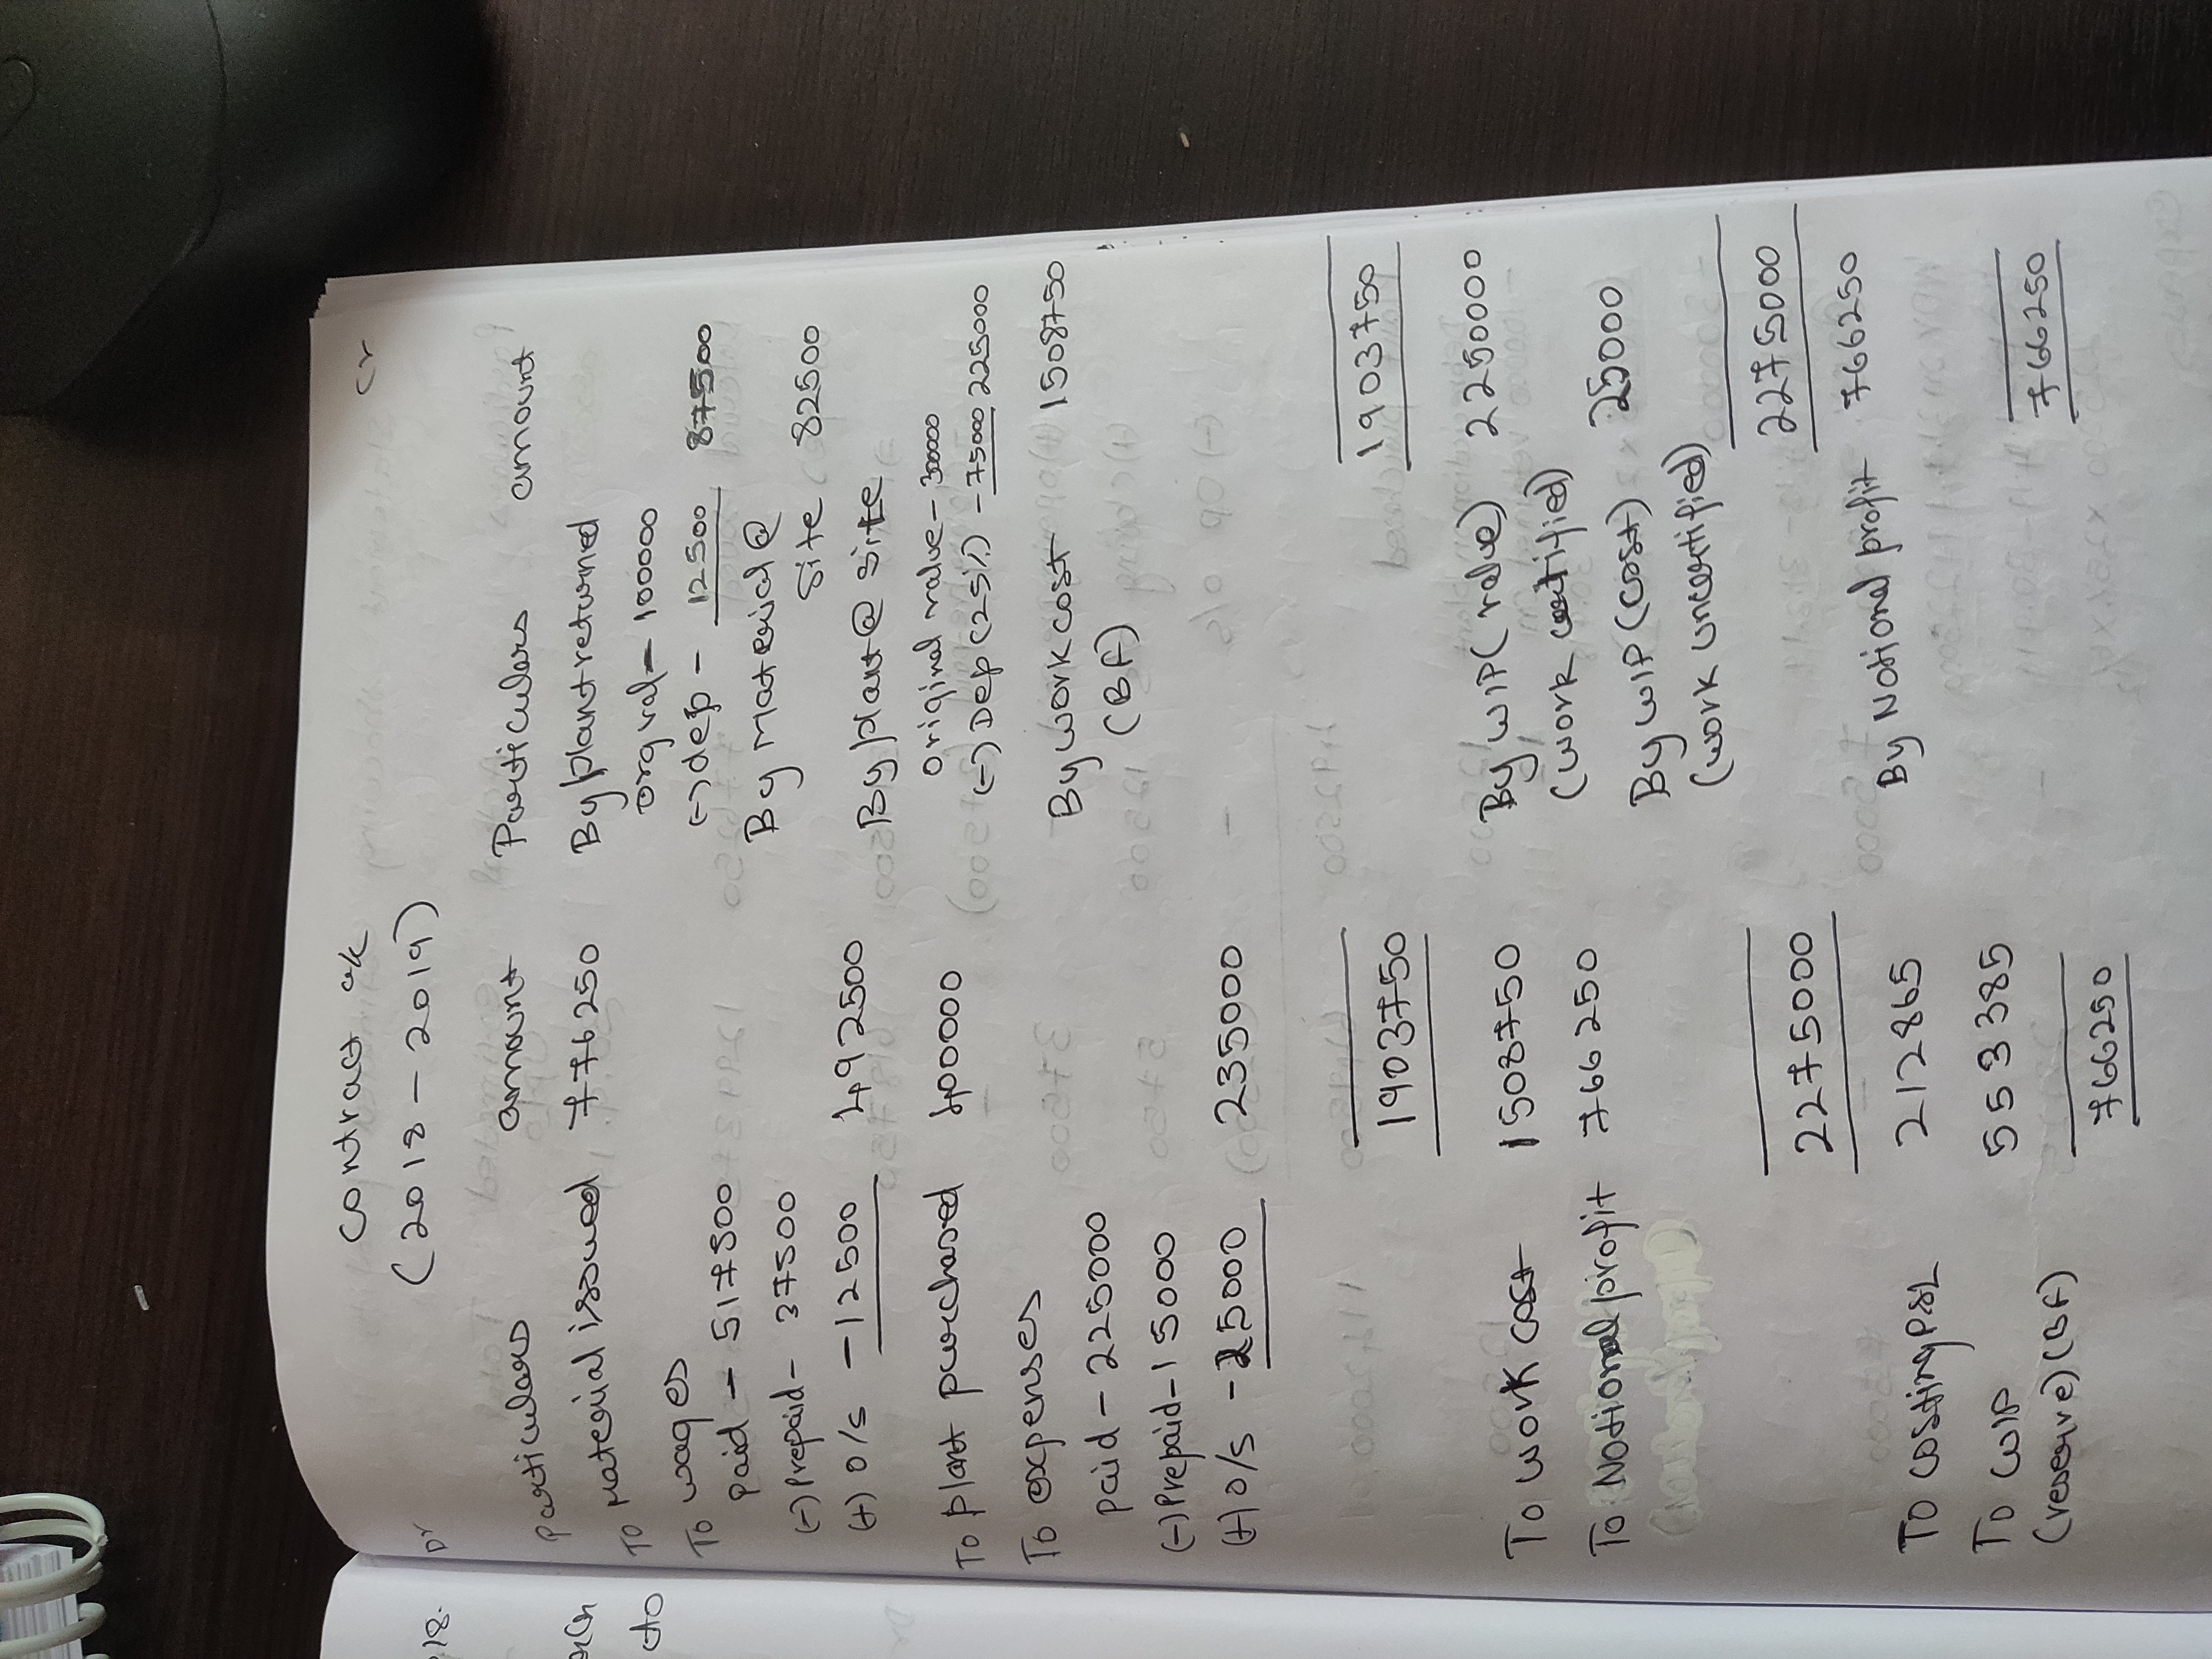 Contract a/c
(2018 - 2019)
Dr
Cr
Particulars amount Particulars amount
To Material issued 776250 By plant returned
To wages orgval - 100000
Paid - 517500 (-) dep - 12500 87500
(-) Prepaid - 37500 By Material @
(+) O/S - 12500 492500 Site 82500
By plant @ site
To plant purchased 400000 Original value - 300000
To expenses (-) Dep (25%) - 75000 225000
paid - 225000 By work cost 1508750
(-) Prepaid - 15000 (BF)
(+) O/S - 25000 235000
1903750 1903750
To work cost 1508750 By WIP (value) 2250000
To Notional profit 766250 (work certified)
By WIP (cost) 25000
(work uncertified)
2275000 2275000
To costing P&L 212865 By Notional profit 766250
To WIP 553385
(reserve) (BF)
766250 766250
18.
to